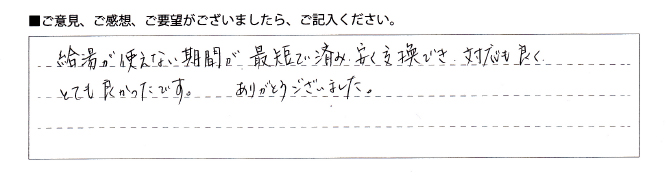 ■ご意見、ご感想、ご要望がございましたら、ご記入ください。
給湯が使えない期間が 最短で済み 安く交換でき 対応も良く
とても良かったです。 ありがとうございました。